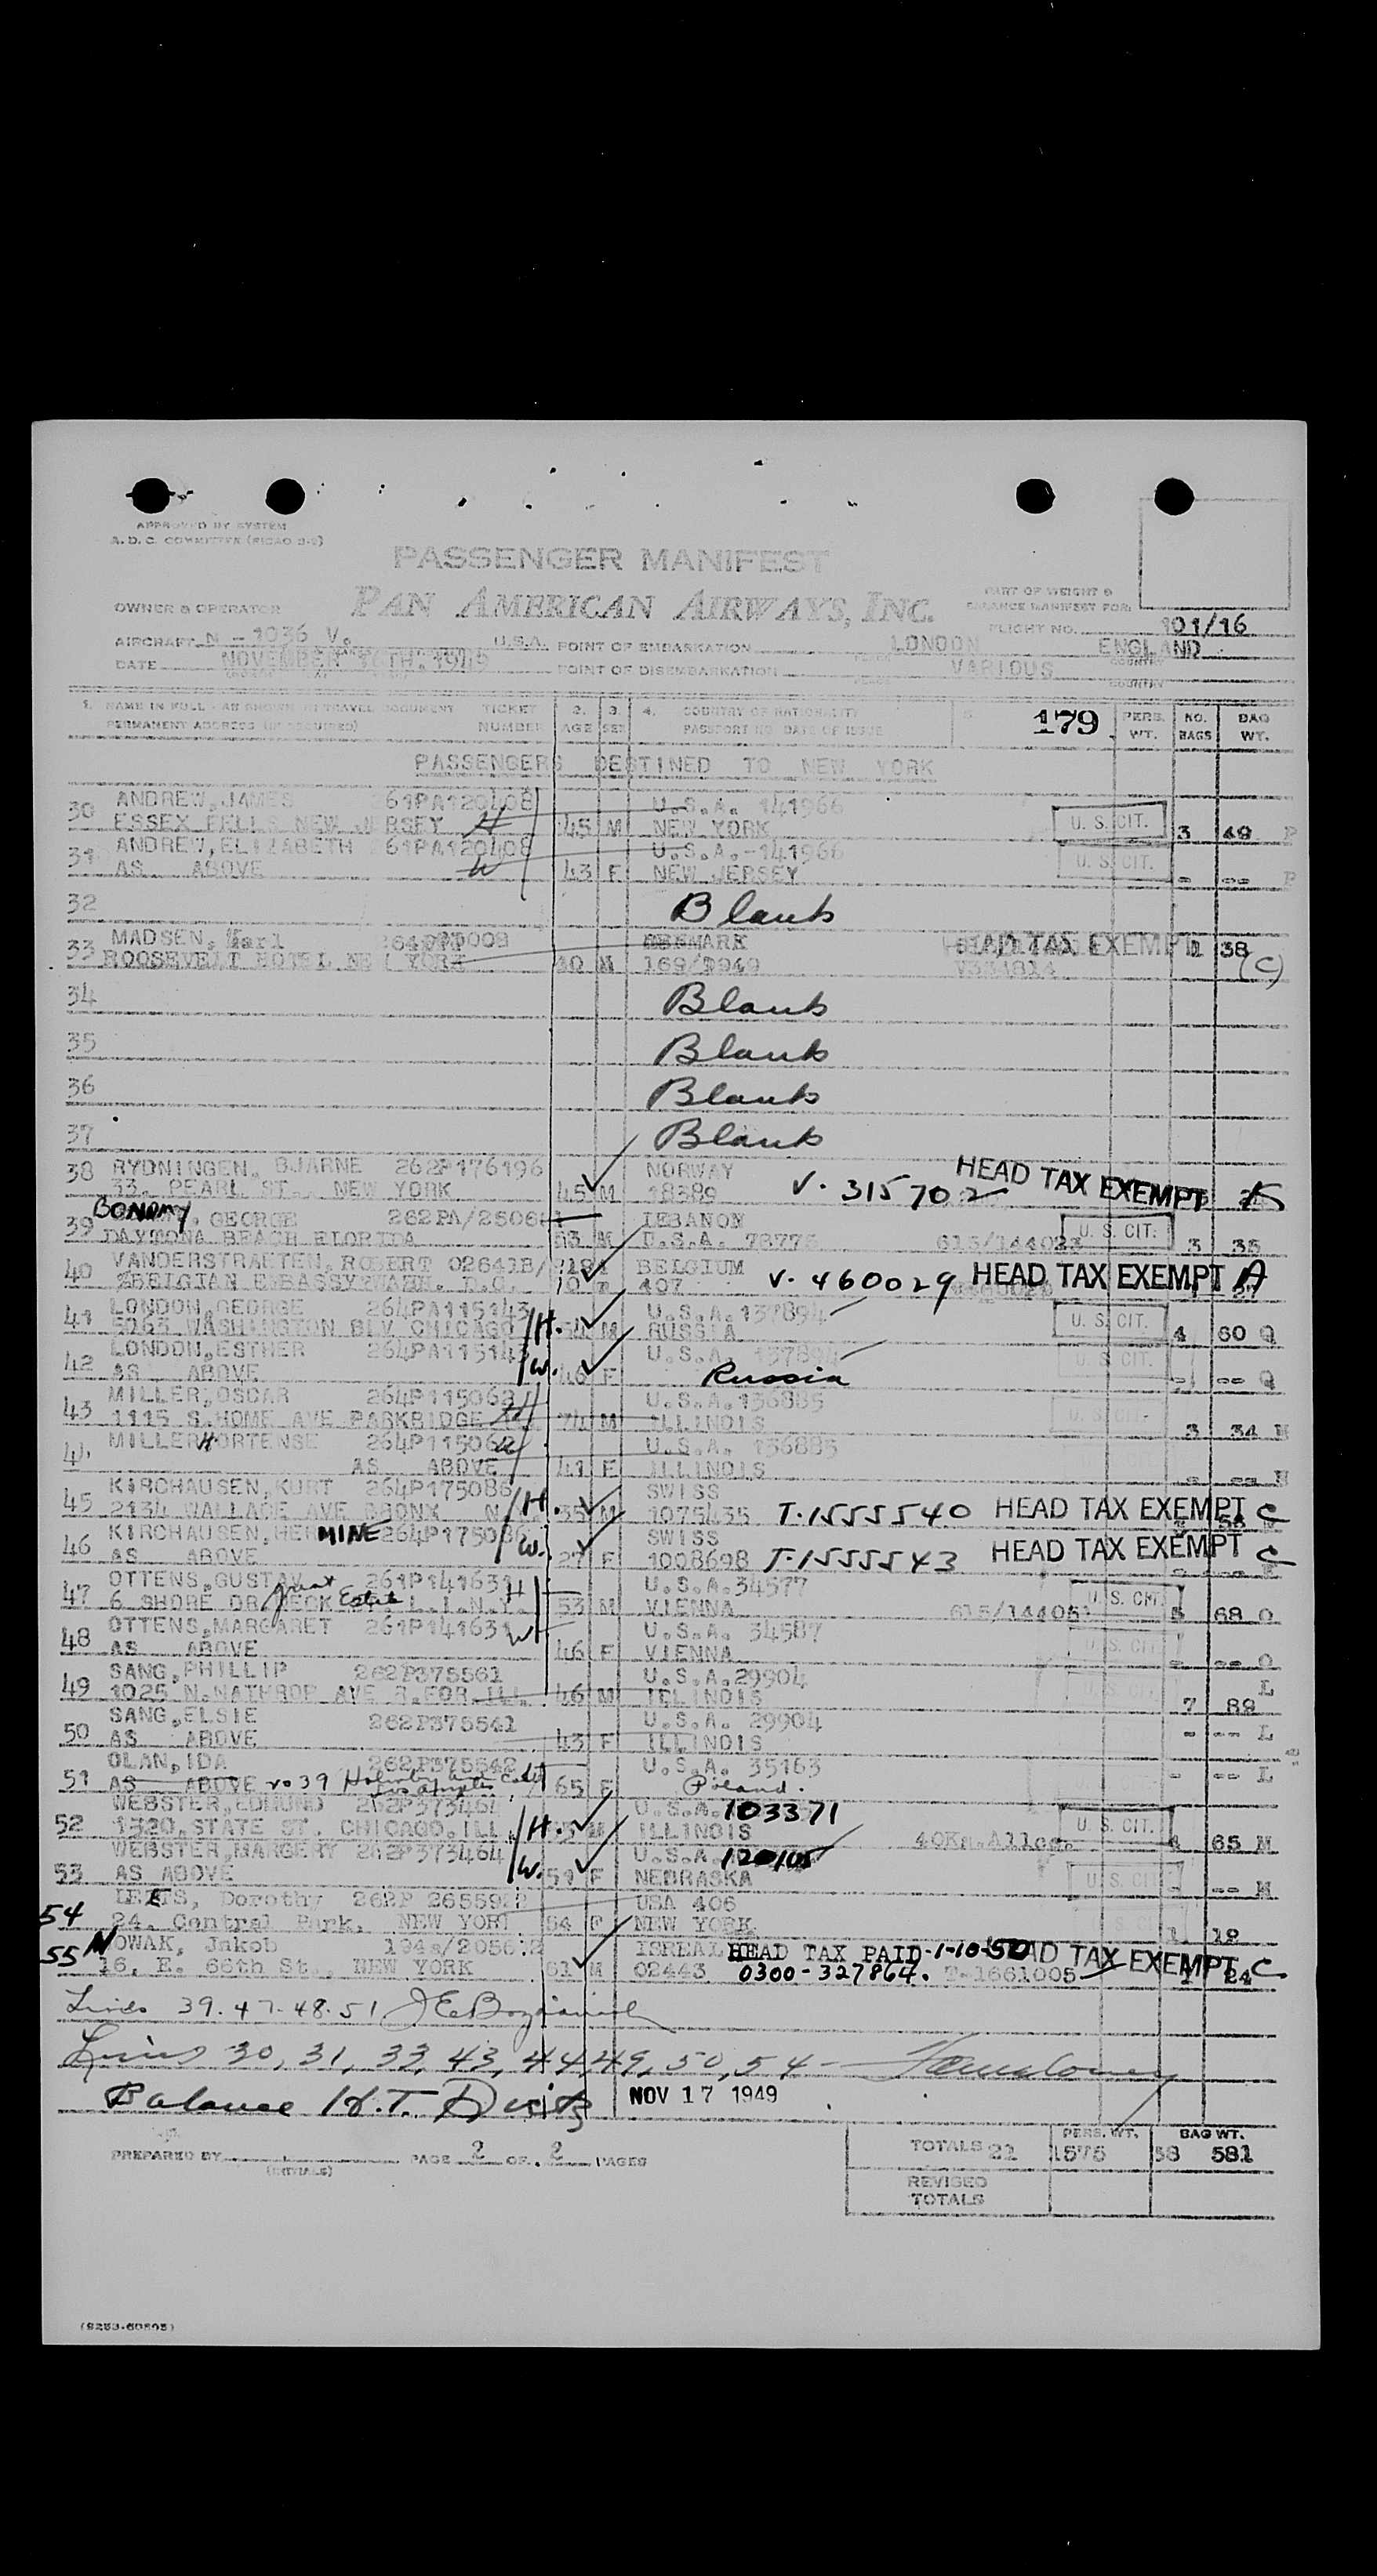 APPROVED BY SYSTEM
A. D. C. COMMITTEE (PICAO 2-2)
PASSENGER MANIFEST
OWNER & OPERATOR PAN AMERICAN AIRWAYS, INC. PART OF WEIGHT &
BALANCE MANIFEST FOR:
FLIGHT NO. 101/16
AIRCRAFT N - 1036 V. U.S.A. POINT OF EMBARKATION LONDON ENGLAND
PLACE COUNTRY
DATE NOVEMBER 16TH. 1949 POINT OF DISEMBARKATION VARIOUS
PLACE COUNTRY
1. NAME IN FULL - AS SHOWN IN TRAVEL DOCUMENT TICKET 2. 3. 4. COUNTRY OF NATIONALITY 5. 179 PERS. NO. BAG
PERMANENT ADDRESS (IF REQUIRED) NUMBER AGE SEX PASSPORT NO. DATE OF ISSUE WT. BAGS WT.
PASSENGERS DESTINED TO NEW YORK
ANDREW, JAMES 61PA120408 U.S.A. 141966
30 ESSEX FELLS NEW JERSEY H 45 M NEW YORK U. S. CIT. 3 49 P
ANDREW, ELIZABETH 61PA120408 U.S.A.-141966
31 AS ABOVE W 43 F NEW JERSEY U. S. CIT. - -- P
32 Blank
MADSEN, Karl HEAD TAX EXEMPT 1 38
33 ROOSEVELT HOTEL NEW YORK 40 M 169/ V331814 (C)
34 Blank
35 Blank
36 Blank
37 Blank
RYDNINGEN, BJARNE 262P176196 NORWAY
38 33. PEARL ST., NEW YORK 45 M 18389 V. 315702 HEAD TAX EXEMPT
BONAMY, GEORGE 262PA/25061 LEBANON
39 DAYTONA BEACH FLORIDA 53 M U.S.A. 78775 615/144023 U. S. CIT. 3 35
VANDERSTRAETEN, ROBERT 02641B/ BELGIUM
40 %BELGIAN EMBASSY WASH. D.C. 407 V. 460029 HEAD TAX EXEMPT A
LONDON, GEORGE 264PA115143 U.S.A. 137894
41 5065 WASHINGTON BLV CHICAGO /H. 54 M RUSSIA U. S. CIT. 4 60 Q
LONDON, ESTHER 264PA115143 U.S.A. 137894
42 AS ABOVE /W. 46 F Russia U. S. CIT. - -- Q
MILLER, OSCAR 264P115062 U.S.A. 136885
43 1115 S. HOME AVE PARKBRIDGE H 74 M ILLINOIS U. S. CIT. 3 34 N
MILLER HORTENSE 264P115062 U.S.A. 136885
AS ABOVE W 41 F ILLINOIS - -- N
KIRCHAUSEN, KURT 264P175086 SWISS
45 2134 WALLACE AVE BRONX N /H. 35 M 1075435 T-1555540 HEAD TAX EXEMPT C
KIRCHAUSEN, HERMINE 264P175086 SWISS
46 AS ABOVE /W. 27 F 1008698 T-1555543 HEAD TAX EXEMPT C
OTTENS, GUSTAV 261P141631 H U.S.A. 34577
47 6 SHORE DR Great NECK Estate L.I.N.Y. 53 M VIENNA 615/144051 U. S. CIT. 5 68 O
OTTENS, MARGARET 261P141631 W U.S.A. 34587
48 AS ABOVE 46 F VIENNA U. S. CIT. - -- O
SANG, PHILLIP 262P375561 U.S.A. 29904
49 1025 N. NATHROP AVE R. FOR. ILL. 46 M ILLINOIS 7 89 L
SANG, ELSIE 262P375541 U.S.A. 29904
50 AS ABOVE 43 F ILLINOIS - -- L
OLAN, IDA 262P375542 U.S.A. 35163
51 AS ABOVE Los Angeles 65 F Poland. - -- L
WEBSTER, EDMUND 262P373464 U.S.A. 103371
52 1320. STATE ST. CHICAGO. ILL /H. M ILLINOIS 40Kg. Allce. U. S. CIT. 4 65 M
WEBSTER, MARGERY 262P373464 U.S.A. 120105
53 AS ABOVE /W. 51 F NEBRASKA U. S. CIT. - -- M
Dorothy 262P 26559 USA 406
54 24. Central Park, NEW YORK 54 F NEW YORK 1 19
NOWAK, Jakob ISREAL HEAD TAX PAID -1-10-50 HEAD TAX EXEMPT C
55 16, E. 66th St., NEW YORK 61 M 02443 0300-327864. T-1661005 1 24
Lines 39. 47. 48. 51
Lines 30, 31, 33, 43, 44, 49, 50, 54 -
Balance H.T. NOV 17 1949
PREPARED BY (INITIALS) PAGE 2 OF 2 PAGES TOTALS 21 PERS. WT. 1575 38 BAG WT. 581
REVISED
TOTALS
(9253-60805)